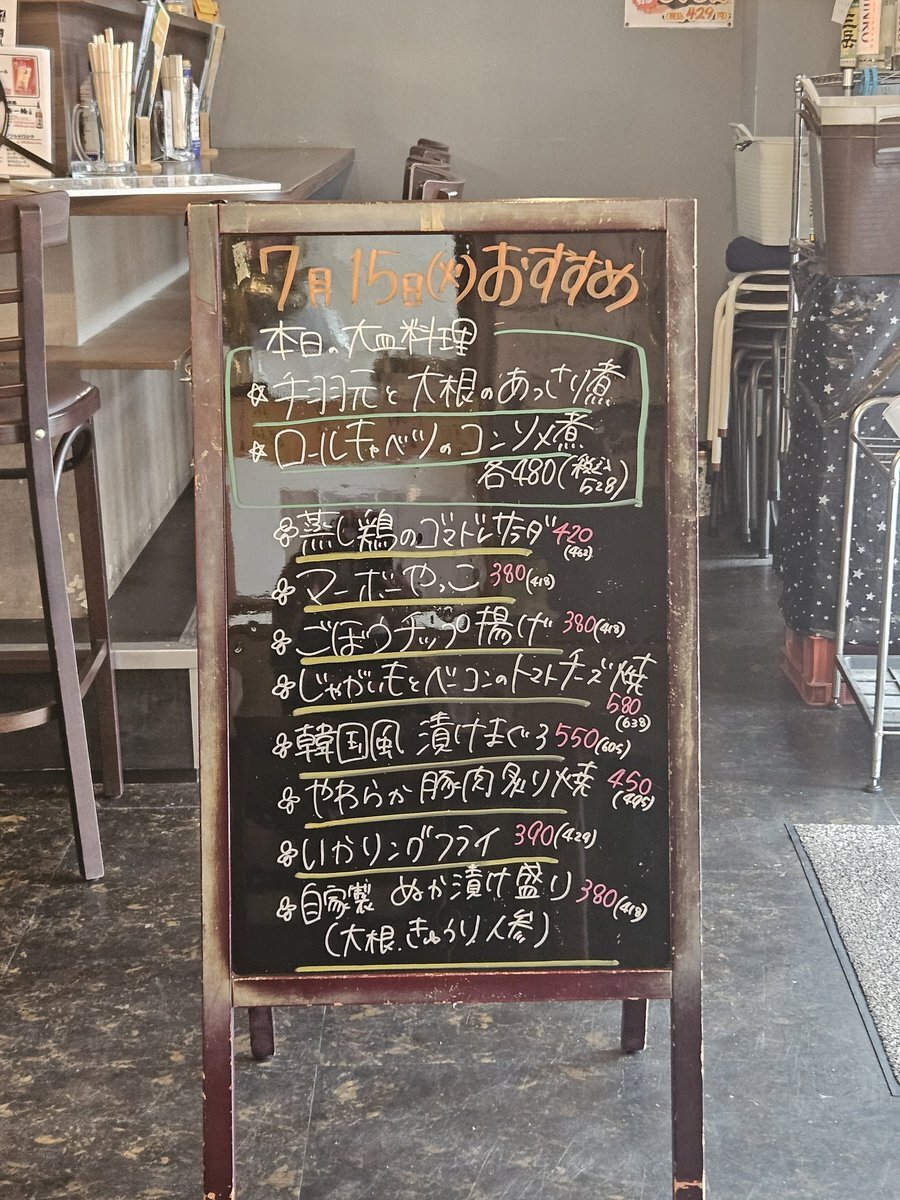 7月15日(火)おすすめ
本日の大皿料理
☆手羽元と大根のあっさり煮
☆ロールキャベツのコンソメ煮
各480(税込528)
蒸し鶏のゴマドレサラダ 420(462)
マーボーやっこ 380(418)
ごぼうチップ揚げ 380(418)
じゃがいもとベーコンのトマトチーズ焼
580(638)
韓国風 漬けまぐろ 550(605)
やわらか豚肉炙り焼 450(495)
いかリングフライ 390(429)
自家製 ぬか漬け盛り 380(418)
(大根.きゅうり.人参)
(税込429円)